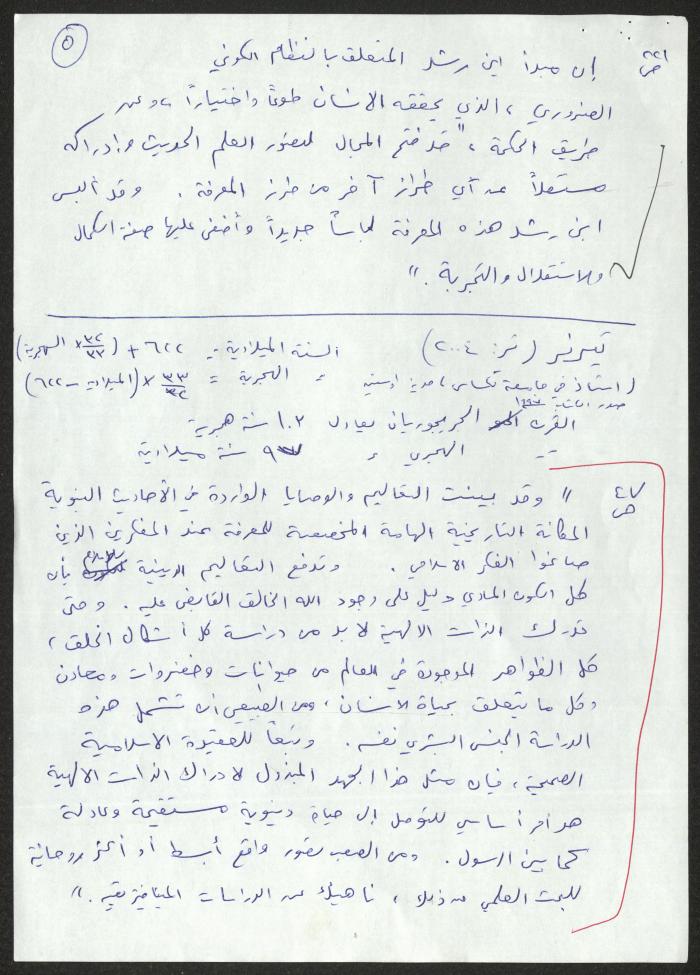 ٥
ص ٢٢١
إن مبدأ ابن رشد المتعلق بالنظام الكوني
الضروري ، الذي يحققه الانسان طوعاً واختياراً ، وعبر
طريق الحكمة ، "قد فتح المجال لتصور العلم الحديث وإدراكه
مستقلاً عن أي طراز آخر من طرز المعرفة . وقد ألبس
ابن رشد هذه المعرفة لباساً جديداً وأضفى عليها صفة الكمال
والاستقلال والتجربة ."
تيرنر (تر: ٢٠٠٤) السنة الميلادية = ٦٢٢ + (٣٢/٣٣ × الهجرية)
" الهجرية = ٣٣/٣٢ × (الميلادية - ٦٢٢)
(استاذ في جامعة تكساس / مدينة اوستن
صدور الكتاب ١٩٩٧
القرن الجريجوريان يعادل ١٠٢ سنة هجرية
" الهجري " ٩٧ سنة ميلادية
ص ٤٧
" وقد بينت التعاليم والوصايا الواردة في الأحاديث النبوية
المكانة التاريخية الهامة المخصصة للمعرفة عند المفكرين الذين
صاغوا الفكر الاسلامي . وتدفع التعاليم الدينية للإسلام بأن
كل الكون المادي دليل على وجود الله الخالق القابض عليه . وحتى
تدرك الذات الالهية لا بد من دراسة كل أشكال الخلق ،
كل الظواهر الموجودة في العالم من حيوانات وخضروات ومعادن
وكل ما يتعلق بحياة الانسان ، ومن الطبيعي أن تشمل هذه
الدراسة الجنس البشري نفسه . وتبعاً للعقيدة الاسلامية
الصحيحة ، فإن مثل هذا الجهد المبذول لادراك الذات الالهية
هو أمر أساسي للتوصل إلى حياة دنيوية مستقيمة وعادلة
كما بين الرسول . ومن الصعب تصور واقع أبسط أو أكثر روحانية
للبحث العلمي من ذلك ، ناهيك عن الدراسات الميتافيزيقية ."